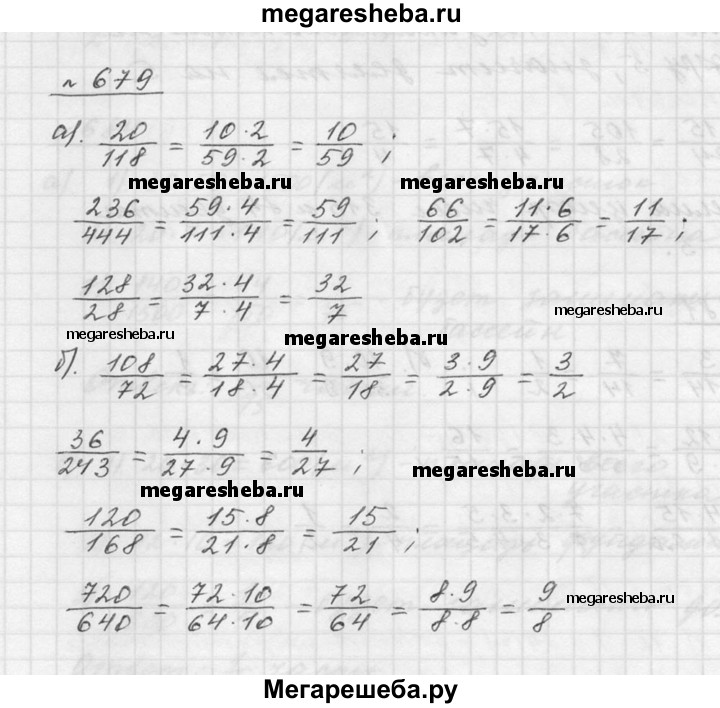 megaresheba.ru
№ 679
а). 20/118 = 10·2/59·2 = 10/59 ;
megaresheba.ru megaresheba.ru
236/444 = 59·4/111·4 = 59/111 ; 66/102 = 11·6/17·6 = 11/17 ;
128/28 = 32·4/7·4 = 32/7
megaresheba.ru megaresheba.ru
б). 108/72 = 27·4/18·4 = 27/18 = 3·9/2·9 = 3/2
36/243 = 4·9/27·9 = 4/27 ;
megaresheba.ru
megaresheba.ru
120/168 = 15·8/21·8 = 15/21 ;
720/640 = 72·10/64·10 = 72/64 = 8·9/8·8 = 9/8
megaresheba.ru
Мегарешеба.ру